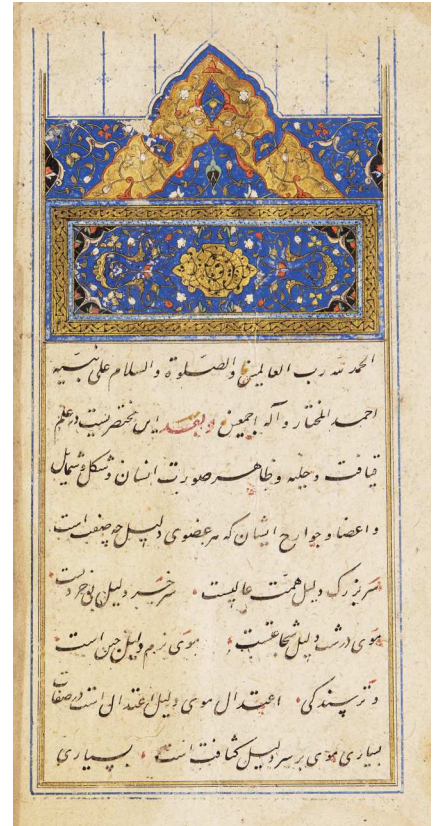 الحمد لله رب العالمین و الصلوة و السلام علی نبیه
احمد المختار و آله اجمعین و بعد این مختصریست در علم
قیافت و حلیه و ظاهر صورت انسان و شکل و شمایل
و اعضا و جوارح ایشان که هر عضوی دلیل چه صفت است
سر بزرک دلیل همت عالیست سر خرد دلیل بی خردیست
موی درشت دلیل شجاعتست موی نرم دلیل جبن است
و ترسندکی اعتدال موی دلیل اعتدال است در صفات
بسیاری موی بر سر دلیل کثافت است بسیاری